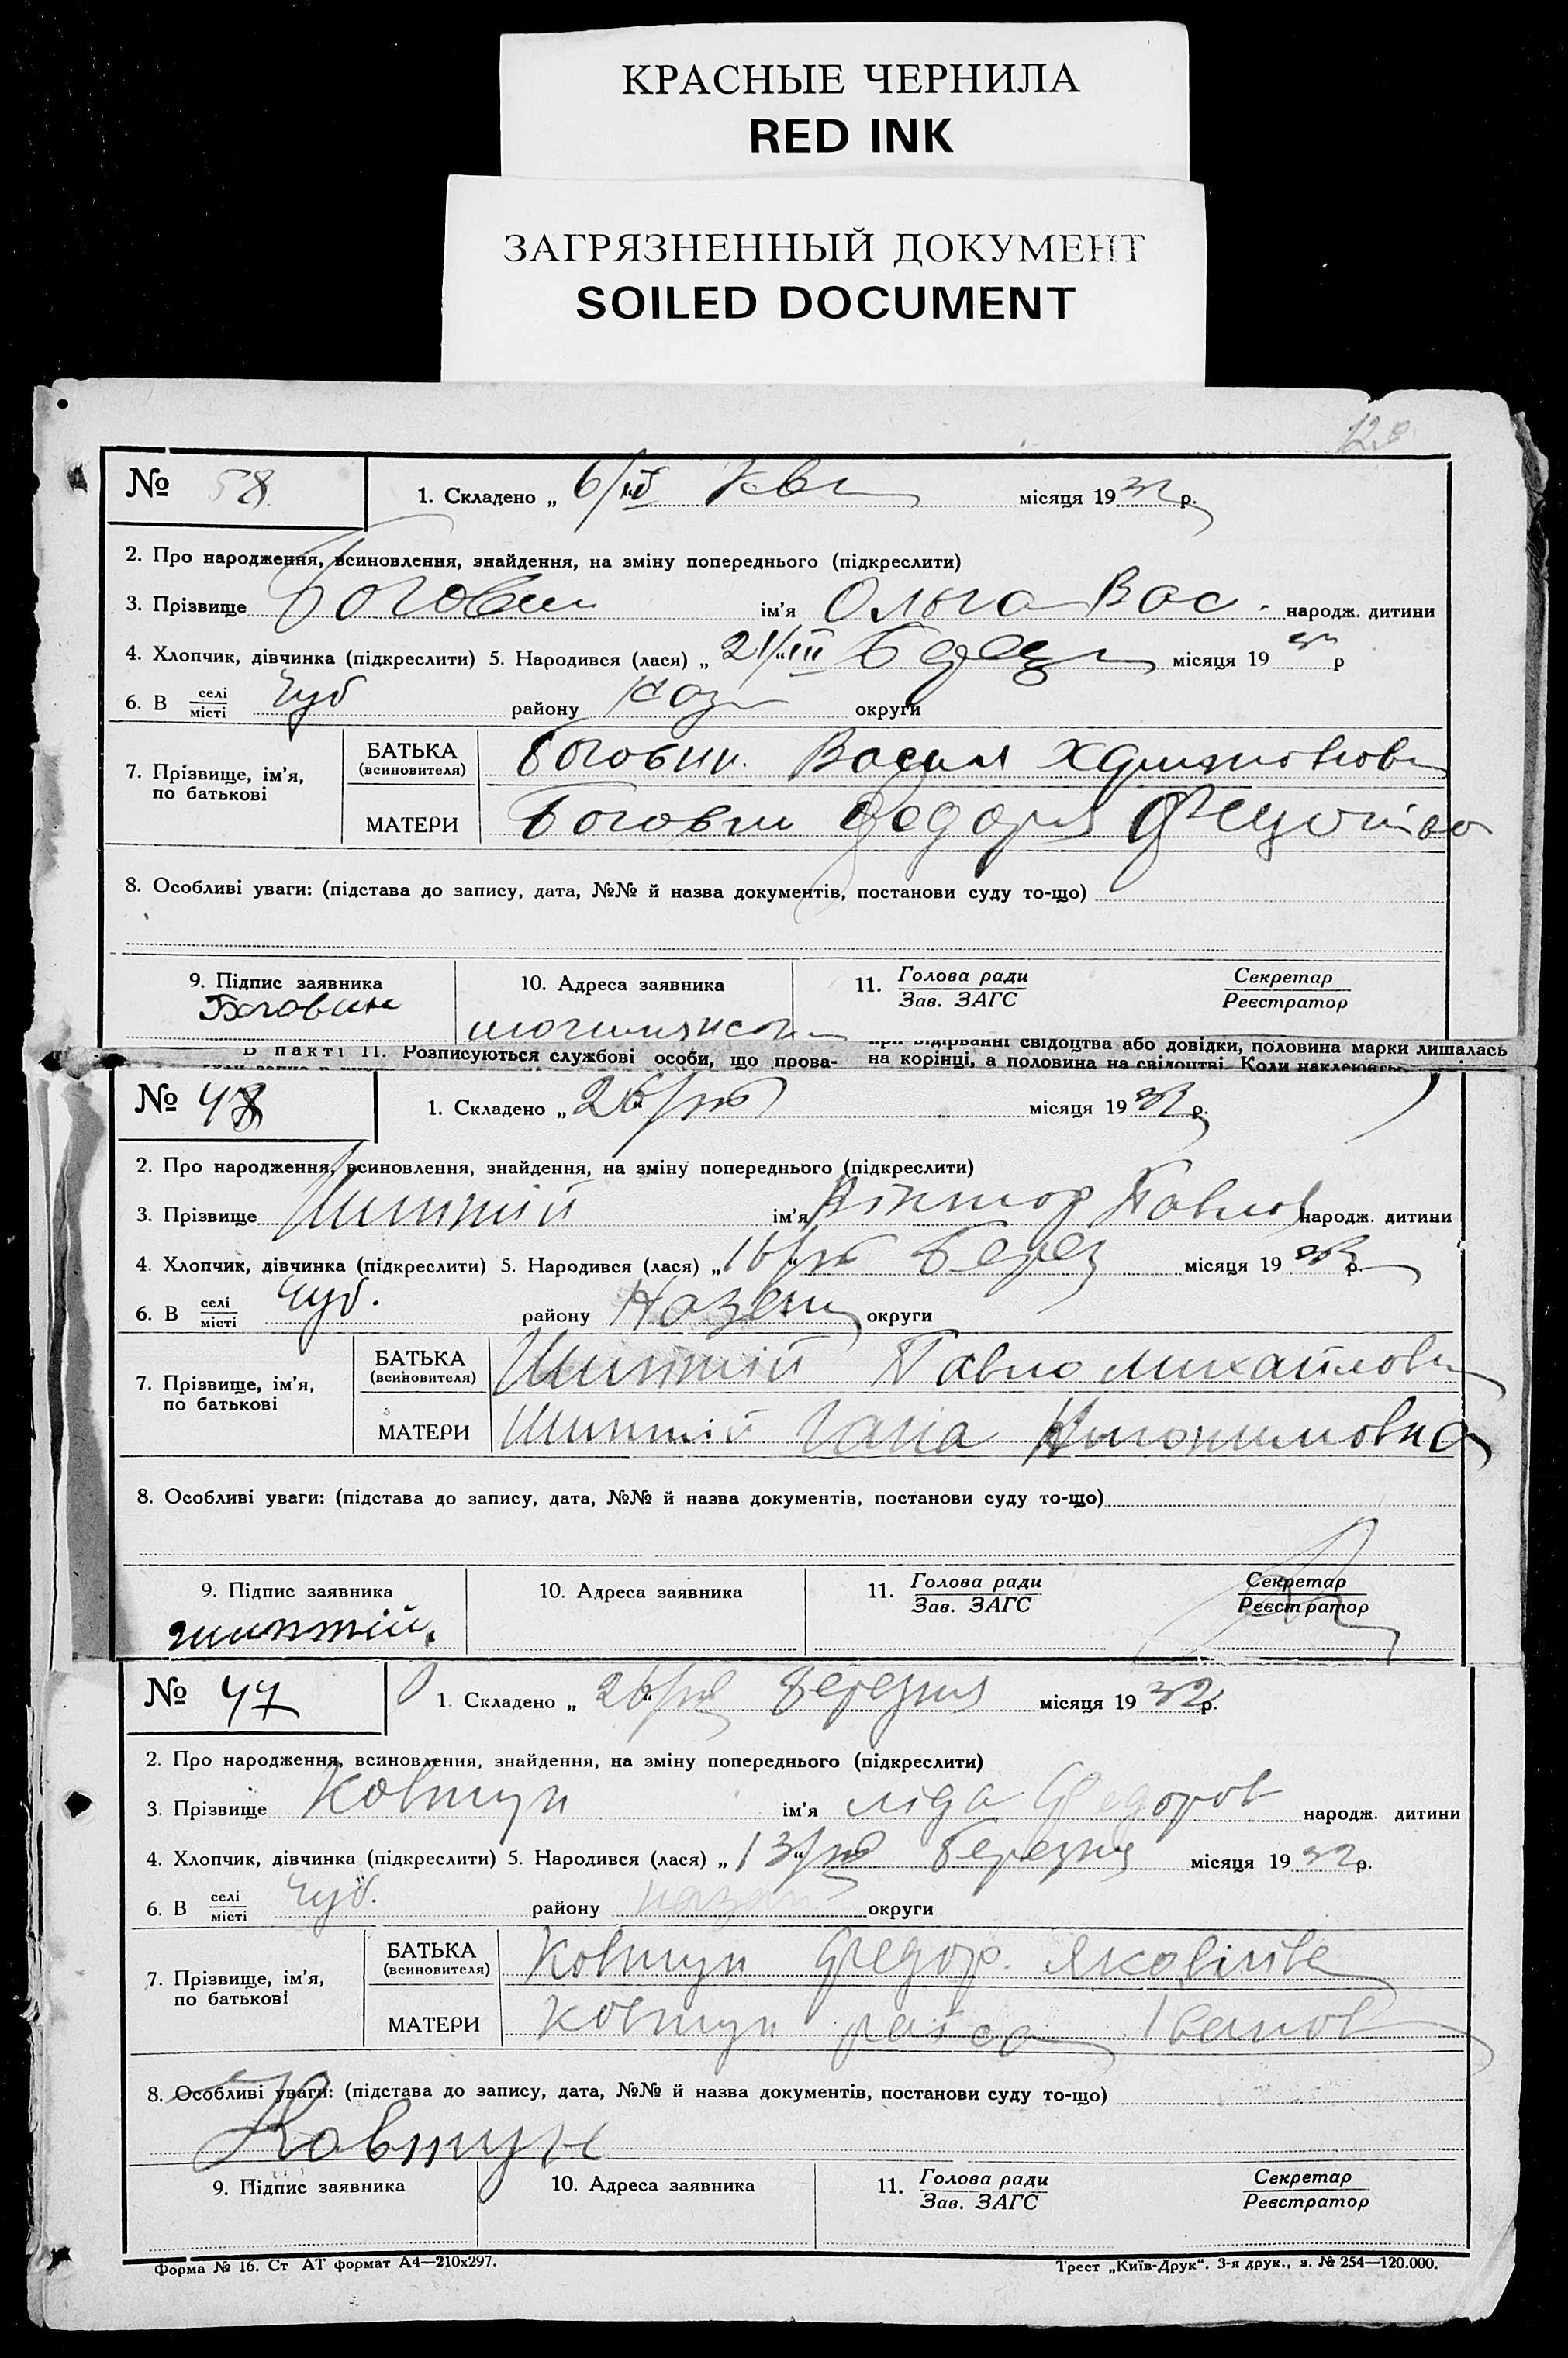 КРАСНЫЕ ЧЕРНИЛА
RED INK
ЗАГРЯЗНЕННЫЙ ДОКУМЕНТ
SOILED DOCUMENT
№ 58 1. Складено „ 6/IV Квіт місяця 1932 р.
2. Про народження, всиновлення, знайдення, на зміну попереднього (підкреслити)
3. Прізвище Боговин ім'я Ольга Вас. народж. дитини
4. Хлопчик, дівчинка (підкреслити) 5. Народився (лася) „ 21/III місяця 19 р
6. В селі/місті Чуб району округи
7. Прізвище, ім'я, по батькові
БАТЬКА (всиновителя) Боговин.
МАТЕРИ Боговин
8. Особливі уваги: (підстава до запису, дата, №№ й назва документів, постанови суду то-що)
9. Підпис заявника 10. Адреса заявника 11. Голова ради/Зав. ЗАГС Секретар/Реєстратор
Боговин
В пакті 11. Розписуються службові особи, що прова-
при відірванні свідоцтва або довідки, половина марки лишалась
на корінці, а половина на свідоцтві. Коли
№ 48 1. Складено „ 26 місяця 1932 р.
2. Про народження, всиновлення, знайдення, на зміну попереднього (підкреслити)
3. Прізвище Шиптій ім'я Віктор Павлов народж. дитини
4. Хлопчик, дівчинка (підкреслити) 5. Народився (лася) „ 16 Берез місяця 1932 р.
6. В селі/місті Чуб. району округи
7. Прізвище, ім'я, по батькові
БАТЬКА (всиновителя) Шиптій Павло Михайлов
МАТЕРИ Шиптій Ганна
8. Особливі уваги: (підстава до запису, дата, №№ й назва документів, постанови суду то-що)
9. Підпис заявника 10. Адреса заявника 11. Голова ради/Зав. ЗАГС Секретар/Реєстратор
Шиптій.
№ 47 1. Складено „ 26 Березня місяця 1932 р.
2. Про народження, всиновлення, знайдення, на зміну попереднього (підкреслити)
3. Прізвище Ковтун ім'я Ліда Федоров народж. дитини
4. Хлопчик, дівчинка (підкреслити) 5. Народився (лася) „ 13 Березня місяця 1932 р.
6. В селі/місті Чуб. району округи
7. Прізвище, ім'я, по батькові
БАТЬКА (всиновителя) Ковтун Федор.
МАТЕРИ Ковтун Раїса Іванов
8. Особливі уваги: (підстава до запису, дата, №№ й назва документів, постанови суду то-що)
Ковтун
9. Підпис заявника 10. Адреса заявника 11. Голова ради/Зав. ЗАГС Секретар/Реєстратор
Форма № 16. Ст АТ формат А4—210х297. Трест „Київ-Друк". 3-я друк., з. № 254—120.000.